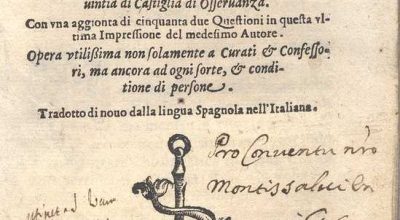 uintia di Castiglia di Osseruanza.
Con vna aggionta di cinquanta due Questioni in questa vl-
tima Impressione del medesimo Autore.
Opera vtilissima non solamente a Curati & Confesso-
ri, ma ancora ad ogni sorte, & condi-
tione di persone.
Tradotto di nouo dalla lingua Spagnola nell'Italiana.
Pro Conventu nro
Montis